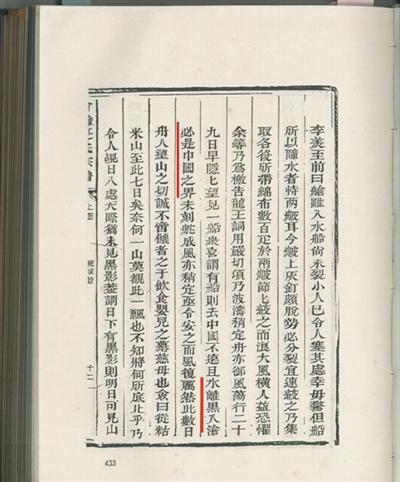 李美至前曰艙雖入水船尚未裂小人已令人塞其處幸毋驚但船
所以障水者特兩皷耳今皷上灰釘頗脫勢必分裂宜速鉸之乃集
取各役所帶綿布數百疋於兩皷篩匕鉸之而浪大風橫人益恐懼
余等乃爲檄告龍王詞用嚴切頃乃波濤稍定舟亦御風蕩行二十
九日早隱匕望見一船衆喜謂有船則去中國不遠且水離黑入滄
必是中國之界未刻舵風亦稍定亟令安之而風復厲然此數日
舟人望山之切誠不啻者之于飲食嬰兒之慕慈母也僉曰從粘
米山至此七日矣奈何一山莫覩此一飄也不知將何所底止乎乃
令人覘日入處天際猶未見黑影葢謂日下有黑影則明日可見山
琉球錄
十二
433